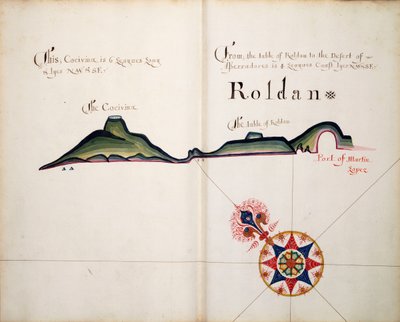 This, Cocivina, is 6 Leagues Long
& lyes N.W. S E.
From, the table of Roldan to the Desert of
is 4 Leagues Coast lyes N.W. S E.
Roldan
The Cocivina
The table of Roldan
Port of Martin
Lopez